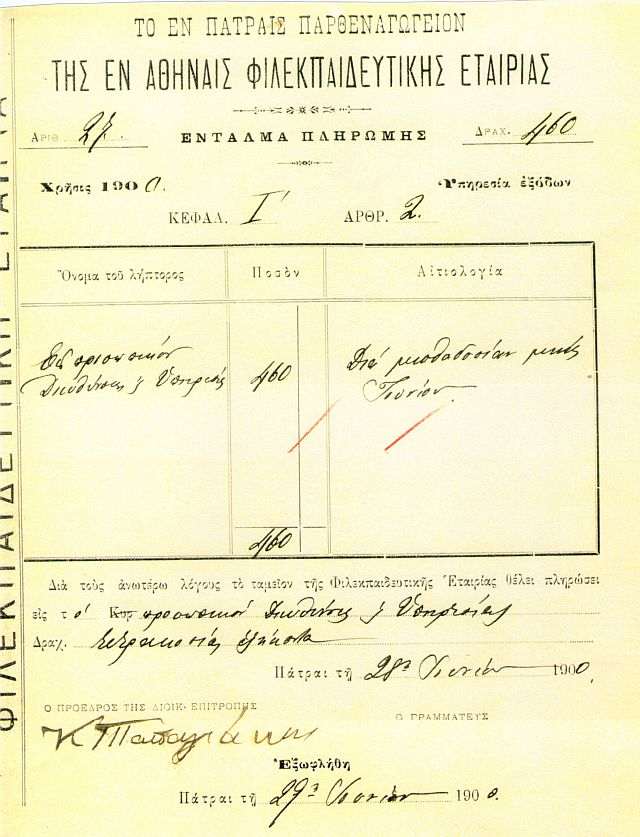 ΤΟ ΕΝ ΠΑΤΡΑΙΣ ΠΑΡΘΕΝΑΓΩΓΕΙΟΝ
ΤΗΣ ΕΝ ΑΘΗΝΑΙΣ ΦΙΛΕΚΠΑΙΔΕΥΤΙΚΗΣ ΕΤΑΙΡΙΑΣ
ΑΡΙΘ. 27 ΕΝΤΑΛΜΑ ΠΛΗΡΩΜΗΣ ΔΡΑΧ. 460
Χρῆσις 1900. Ὑπηρεσία ἐξόδων
ΚΕΦΑΛ. Ι' ΑΡΘΡ. 2.
Ὄνομα τοῦ λήπτορος Ποσὸν Αἰτιολογία
προσωπικὸν
Διευθύνσεως Ὑπηρεσίας 460 Διὰ μισθοδοσίαν μηνὸς
Ἰουνίου
460
Διὰ τοὺς ἀνωτέρω λόγους τὸ ταμεῖον τῆς Φιλεκπαιδευτικῆς Ἑταιρίας θέλει πληρώσει
εἰς τ ὸ Κυρ προσωπικὸν Διευθύνσεως Ὑπηρεσίας
Δραχ. τετρακοσίας ἑξήκοντα
Πάτραι τῇ 28ῃ Ἰουνίου 1900.
Ο ΠΡΟΕΔΡΟΣ ΤΗΣ ΔΙΟΙΚ· ΕΠΙΤΡΟΠΗΣ
Ο ΓΡΑΜΜΑΤΕΥΣ
Ἐξωφλήθη
Πάτραι τῇ 29ῃ Ἰουνίου 1900.
ΦΙΛΕΚΠΑΙΔΕΥΤΙΚΗ ΕΤΑΙΡΙΑ